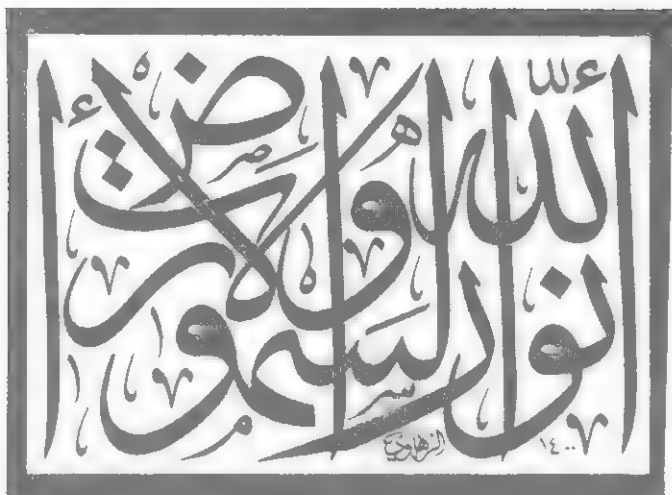 الله نور السموات والأرض
الزهاوي ١٤٠٠